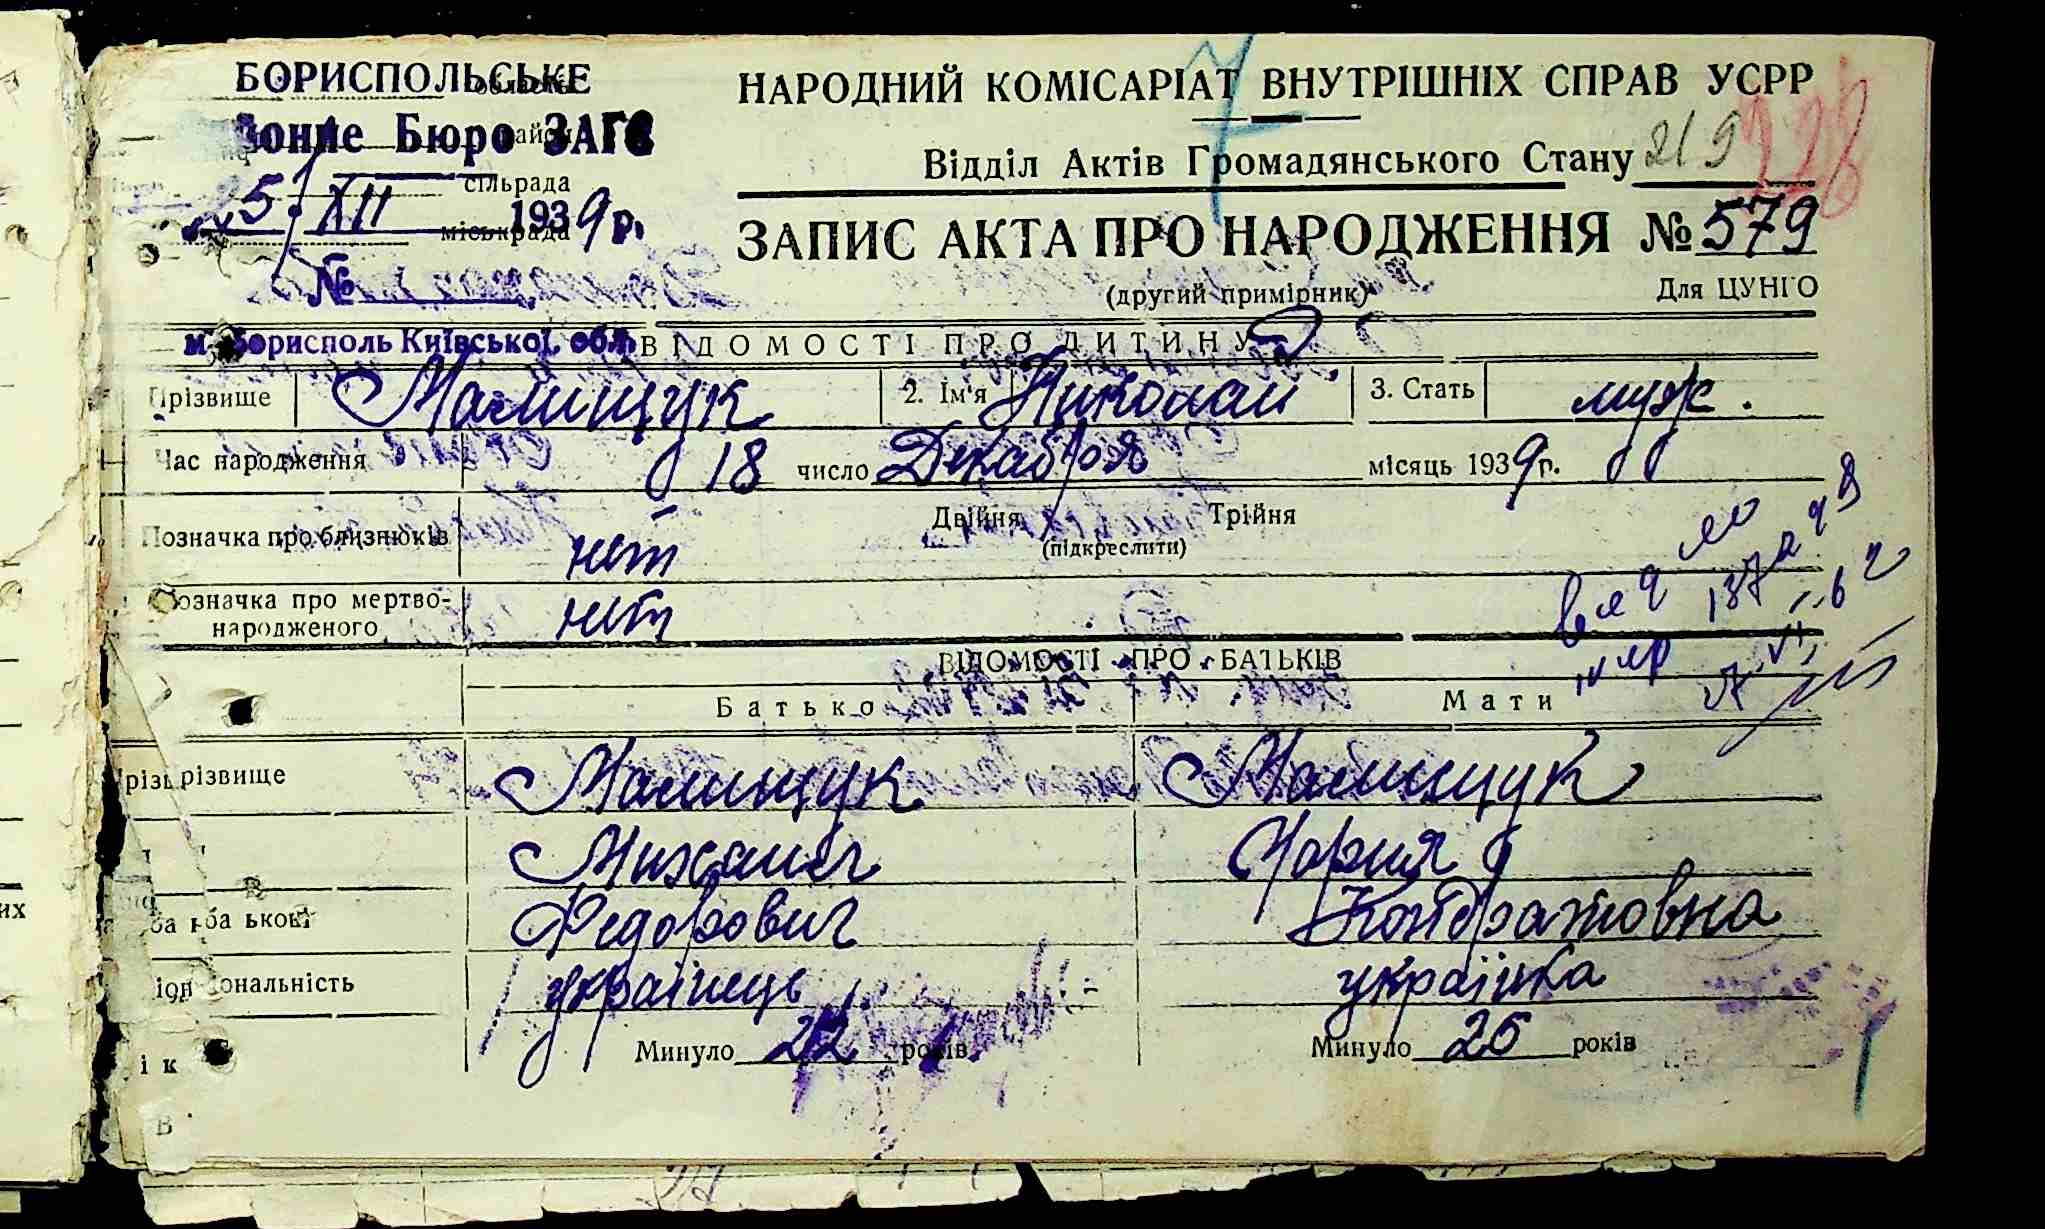 БОРИСПОЛЬСЬКЕ
Бюро ЗАГС
сільрада
25/XII 1939 р.
міськрада
№
м. Борисполь Київської обл.
НАРОДНИЙ КОМІСАРІАТ ВНУТРІШНІХ СПРАВ УСРР
Відділ Актів Громадянського Стану 219
ЗАПИС АКТА ПРО НАРОДЖЕННЯ № 579
(другий примірник) Для ЦУНГО
ВІДОМОСТІ ПРО ДИТИНУ
Прізвище Малищук 2. Ім'я Николай 3. Стать муж.
Час народження 18 число Декабря місяць 1939 р.
Позначка про близнюків нет Двійня Трійня
(підкреслити)
Позначка про мертво-
народженого нет
ВІДОМОСТІ ПРО БАТЬКІВ
Батько Мати
різвище Малищук Малищук
Михаил Мария
ба ькові Федорович Кондратовна
ональність українець українка
і к Минуло 22 років Минуло 25 років